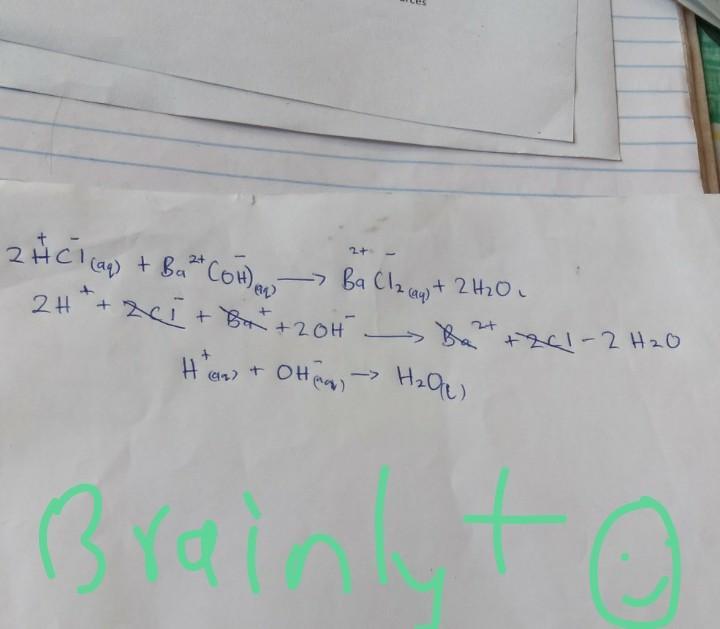 rces
2H⁺Cl⁻(aq) + Ba²⁺(OH)⁻(aq) → Ba²⁺Cl₂⁻(aq) + 2H₂O
2H⁺ + 2Cl⁻ + Ba⁺ + 2OH⁻ → Ba²⁺ + 2Cl - 2H₂O
H⁺(aq) + OH⁻(aq) → H₂O(l)
Brainly+